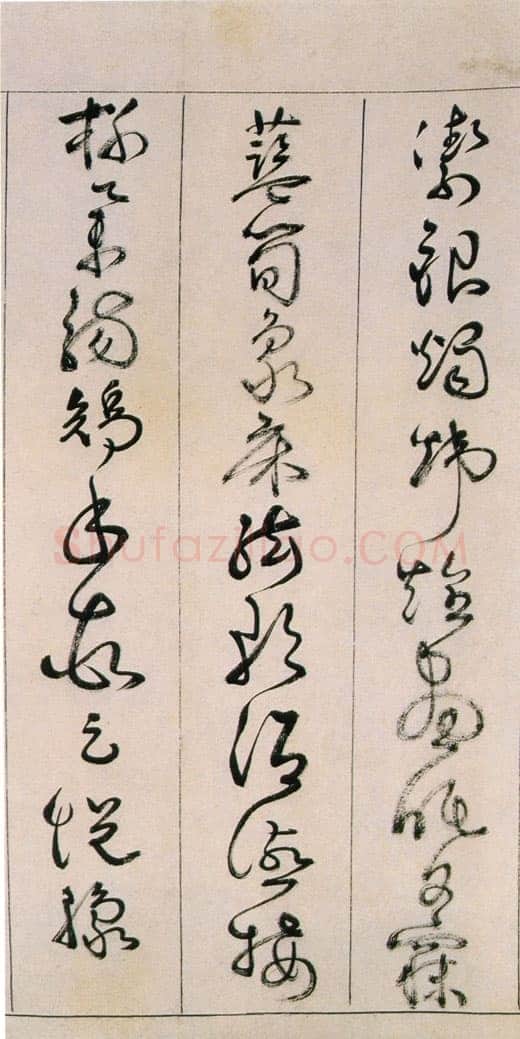 潔銀燭煒煌晝眠夕寐
藍筍象床絃歌酒讌接
杯舉觴矯手頓足悅豫
Shufaziliao.COM